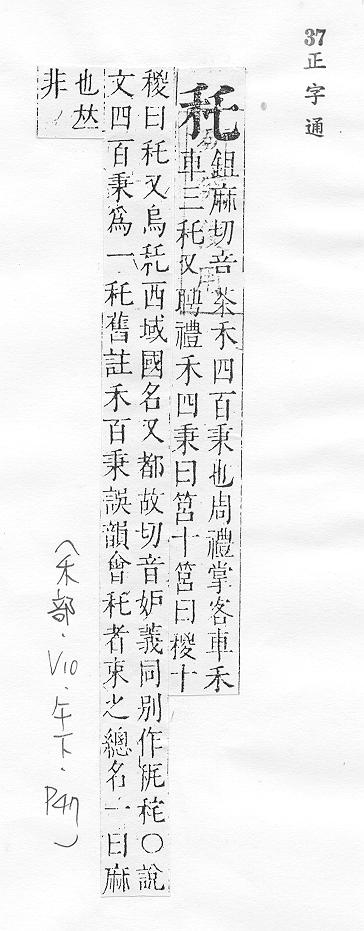 37
正字通
秅
鉏麻切音茶禾四百秉也周禮掌客車禾
車三秅又聘禮禾四秉曰筥十筥曰稯十
稯曰秅又烏秅西域國名又都故切音妒義同別作秺〇說
文四百秉爲一秅舊註禾百秉誤韻會秅者束之總名一曰麻
也𠀤
非
(禾部．V10．午下．P47)